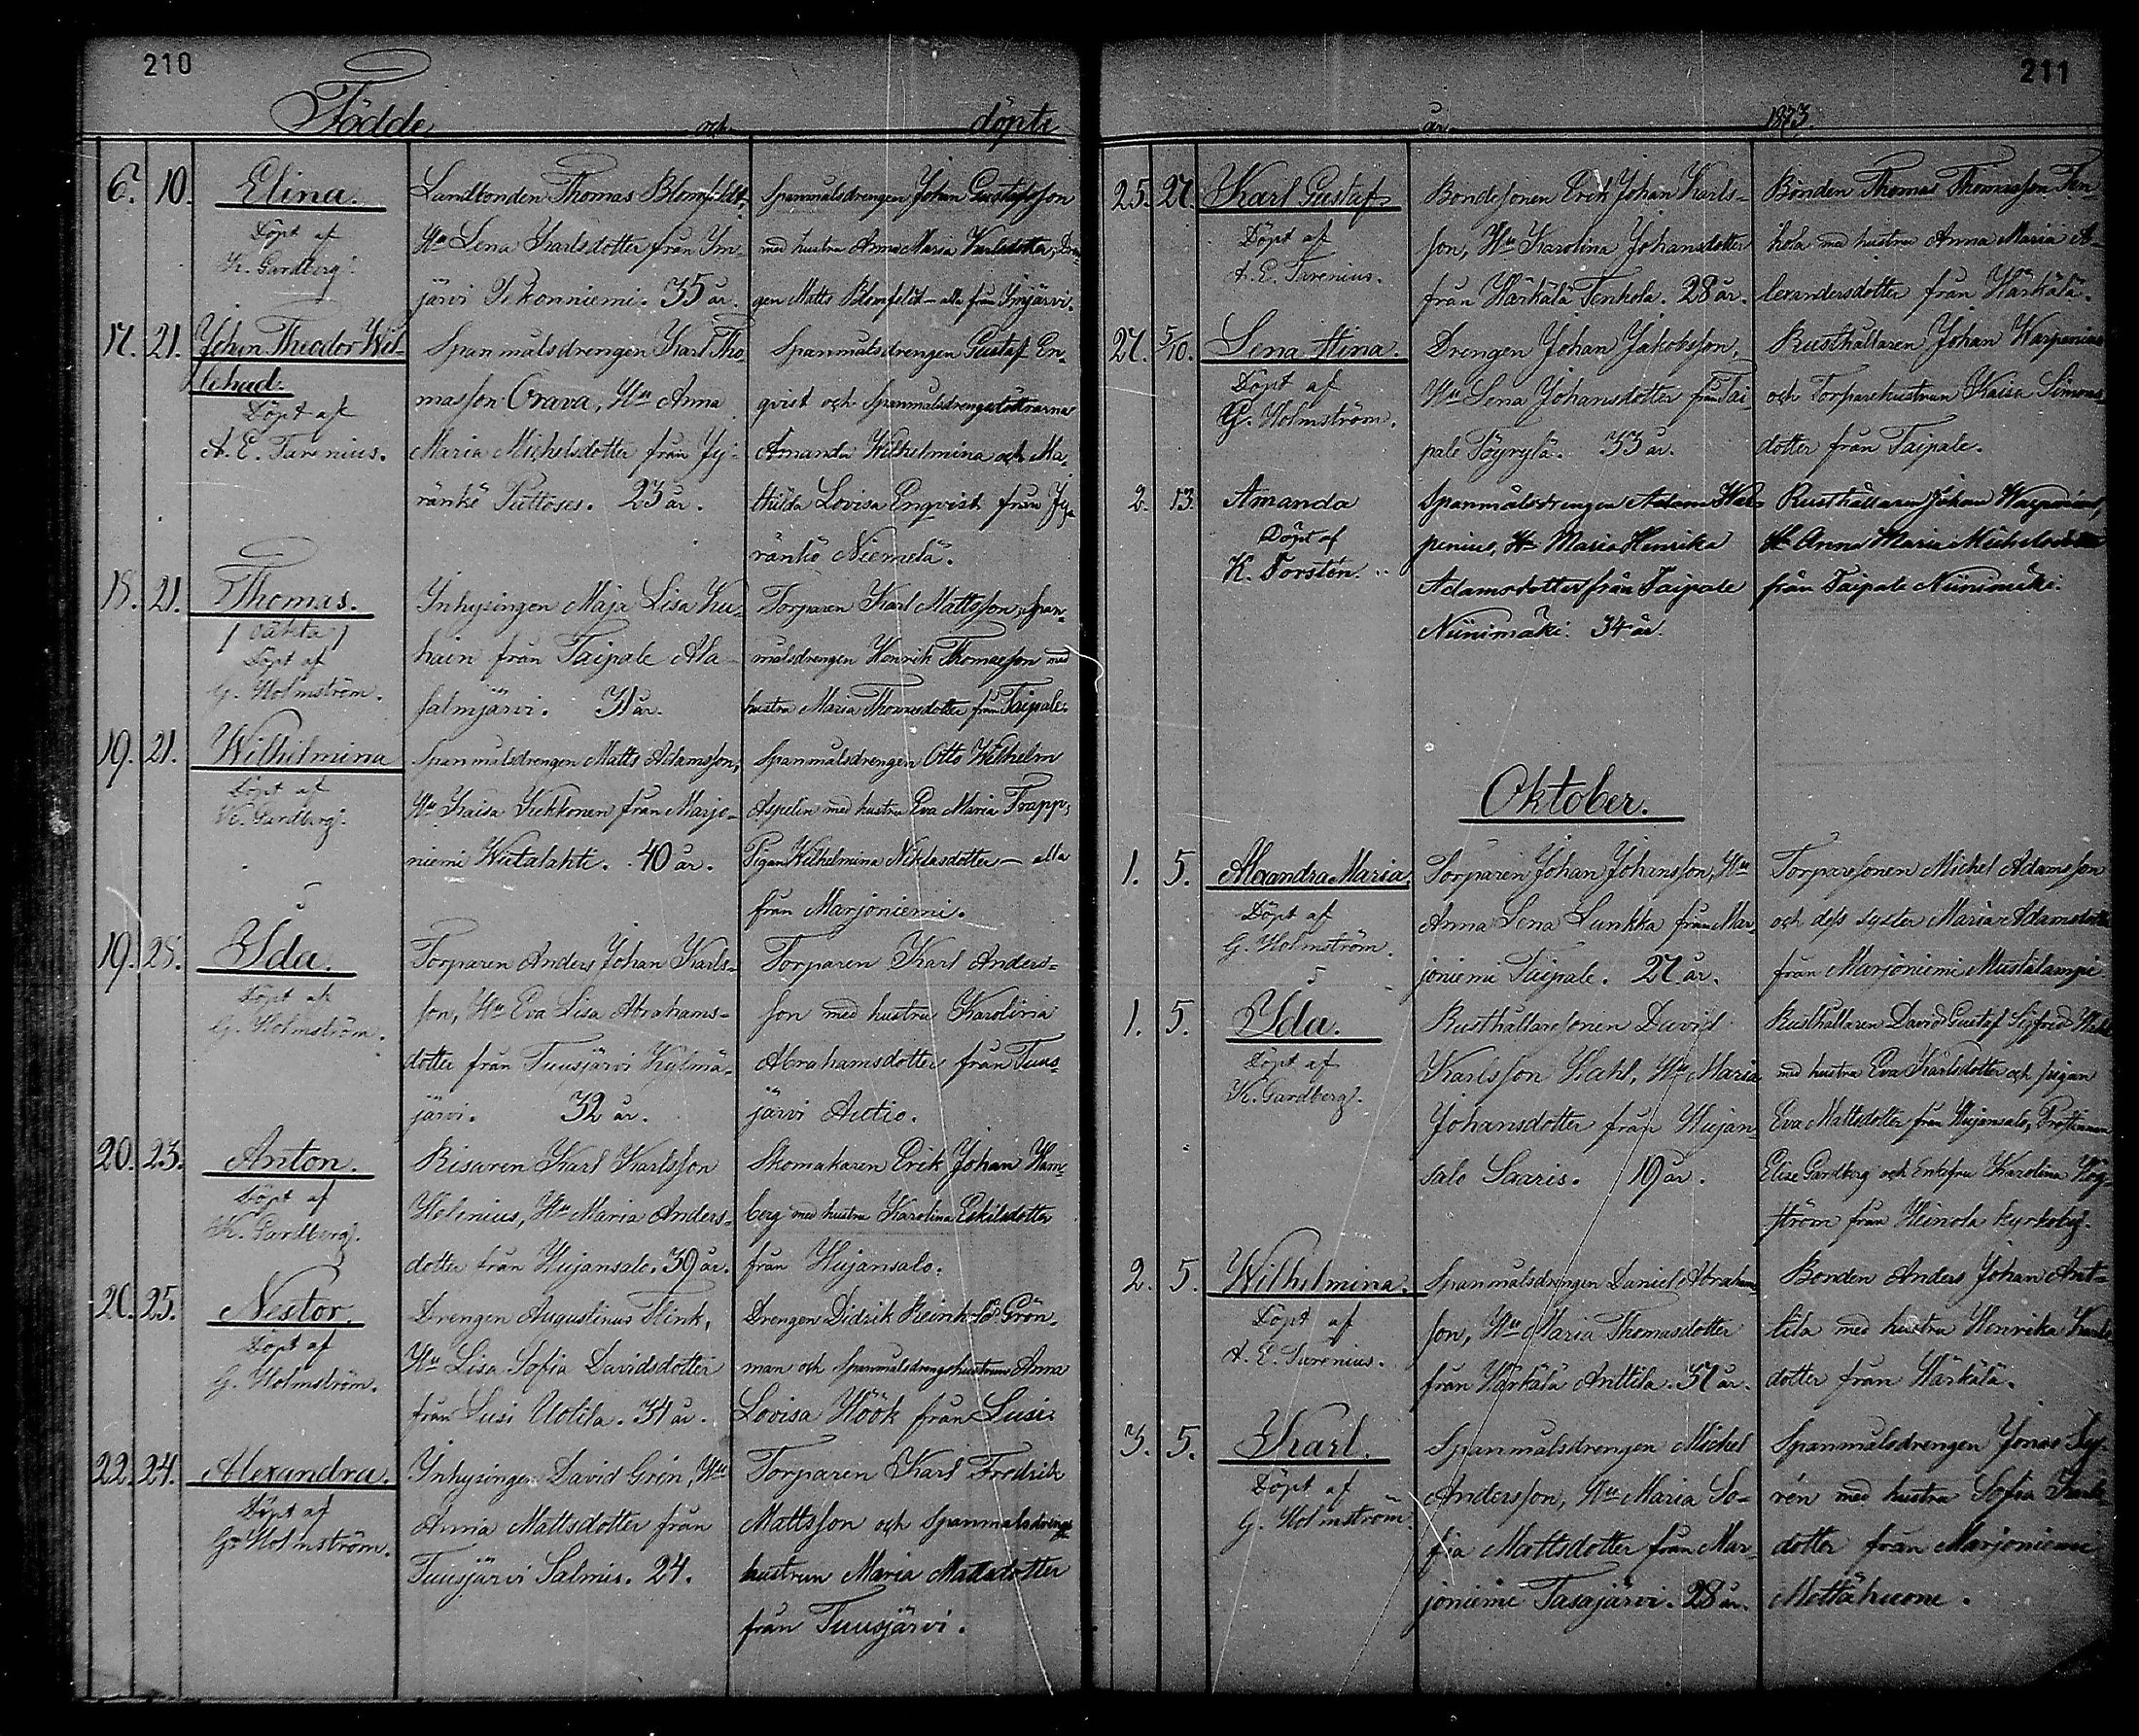 210
Födde och döpte
6. 10. Elina.
Döpt af
K. Gardberg.
Landbonden Thomas Blomfeldt,
Hu Lena Karlsdotter från Im-
järvi Pekonniemi. 35 år.
Spanmålsdrengen Johan Gustafsson
med hustru Anna Maria Karlsdotter, Dren-
gen Matts Blomfeldt – alla från Imjärvi.
17. 21. Johan Theodor Wil-
lehad.
Döpt af
A. E. Tarenius.
Spanmålsdrengen Karl Tho-
masson Orava, Hu Anna
Maria Michelsdotter från Jy-
ränkö Puttoses. 23 år.
Spanmålsdrengen Gustaf En-
qvist och Spanmålsdrengsdöttrarna
Amanda Wilhelmina och Ma-
thilda Lovisa Enqvist från Jy-
ränkö Niemelä.
18. 21. Thomas.
/ oäkta /
Döpt af
G. Holmström.
Inhysingen Maja Lisa Ku-
hain från Taipale Ala-
salmjärvi. 31 år.
Torparen Karl Mattsson, Span-
målsdrengen Henrik Thomasson med
hustru Maria Thomasdotter från Taipale.
19. 21. Wilhelmina
Döpt af
K. Gardberg.
Spanmålsdrengen Matts Adamsson,
Hu Kaisa Kekkonen från Marjo-
niemi Wiitalahti. 40 år.
Spanmålsdrengen Otto Wilhelm
Aspelin med hustru Eva Maria Trapp;
Pigan Wilhelmina Niklasdotter – alla
från Marjoniemi.
19. 28. Ida.
Döpt af
G. Holmström.
Torparen Anders Johan Karls-
son, Hu Eva Lisa Abrahams-
dotter från Tuusjärvi Kylmä-
järvi. 32 år.
Torparen Karl Anders-
son med hustru Karolina
Abrahamsdotter från Tuus-
järvi Autio.
20. 23. Anton.
Döpt af
K. Gardberg.
Risaren Karl Karlsson
Helenius, Hu Maria Anders-
dotter från Hujansalo. 39 år.
Skomakaren Erik Johan Ham-
berg med hustru Karolina Eskilsdotter
från Hujansalo.
20. 25. Nestor.
Döpt af
G. Holmström.
Drengen Augustinus Flink,
Hu Lisa Sofia Davidsdotter
från Lusi Uotila. 34 år.
Drengen Didrik Reinhold Grön-
man och Spanmålsdrengshustrun Anna
Lovisa Höök från Lusi.
22. 24. Alexandra.
Döpt af
G. Holmström.
Inhysingen David Grön, Hu
Anna Mattsdotter från
Tuusjärvi Salmis. 24.
Torparen Karl Fredrik
Mattsson och Spanmålsdrengs
hustrun Maria Mattsdotter
från Tuusjärvi.
211
år 1873.
25. 27. Karl Gustaf
Döpt af
A. E. Tarenius.
Bondesonen Erik Johan Karls-
son, Hu Karolina Johansdotter
från Härkälä Tenhola. 28 år.
Bonden Thomas Thomasson Ten-
hola med hustru Anna Maria A-
lexandersdotter från Härkälä.
27. 5/10. Lena Stina.
Döpt af
G. Holmström.
Drengen Johan Jakobsson,
Hu Lena Johansdotter från Tai-
pale Töyrylä. 33 år.
Rusthållaren Johan Warpenius
och Torparehustrun Kaisa Simons-
dotter från Taipale.
2. 13. Amanda
Döpt af
K. Forstén.
Spanmålsdrengen Adam War-
penius, Hu Maria Henrika
Adamsdotter från Taipale
Niinimäki. 34 år.
Rusthållaren Johan Warpenius,
Hu Anna Maria Michelsdotter
från Taipale Niinimäki.
Oktober.
1. 5. Alexandra Maria.
Döpt af
G. Holmström.
Torparen Johan Johansson, Hu
Anna Lena Lunkka från Mar-
joniemi Taipale. 27 år.
Torparesonen Michel Adamsson
och dess syster Maria Adamsdotter
från Marjoniemi Mustalampi
1. 5. Ida.
Döpt af
K. Gardberg.
Rusthållaresonen David
Karlsson Hahl, Hu Maria
Johansdotter från Hujan-
salo Saaris. 19 år.
Rusthållaren David Gustaf Sigfrid
med hustru Eva Karlsdotter och pigan
Eva Mattsdotter från Hujansalo,
Elise Gardberg och Enkefru Karolina Hög-
ström från Heinola kyrkoby.
2. 5. Wilhelmina.
Döpt af
A. E. Tarenius.
Spanmålsdrengen Daniel Abrahams-
son, Hu Maria Thomasdotter
från Härkälä Anttila. 37 år.
Bonden Anders Johan Ant-
tila med hustru Henrika Karls-
dotter från Härkälä.
3. 5. Karl.
Döpt af
G. Holmström.
Spanmålsdrengen Michel
Andersson, Hu Maria So-
fia Mattsdotter från Mar-
joniemi Tasajärvi. 28 år.
Spanmålsdrengen Jonas
rén med hustru Sofia Karls-
dotter från Marjoniemi
Mottähuone.